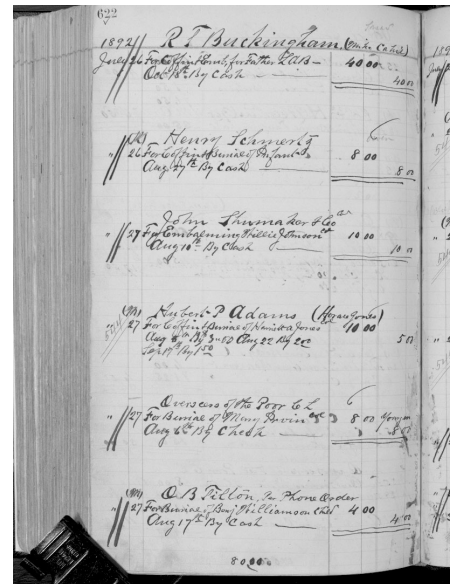 622
1892 R T Buckingham (Mike Cahil)
July 26 For Coffin & Emb. for Father L A B 40 00
Oct 18th By Cash 40 00
(M) Henry Schmertz
26 For Coffin & Burial of Infant 8 00
Aug 27th By Cash 8 00
John Shumaker & Co
" 27 For Embalming Willie Johnson 10 00
Aug 10th By Cash 10 00
(M) Hubert P Adams (Horace Jones)
" 27 For Coffin & Burial of Harriett A Jones 10 00
Aug 8th By 3.00 Aug 22 By 2.00 5 00
Sep 19th By 1.50
Overseers of the Poor C L
" 27 For Burial of Mary Ervin col 8 00
Aug 6th By Check 8 00
(M) O B Tilton, Per Phone Order
" 27 For Burial of Benj Williamson Chld 4 00
Aug 17th By Cash 4 00
80.00